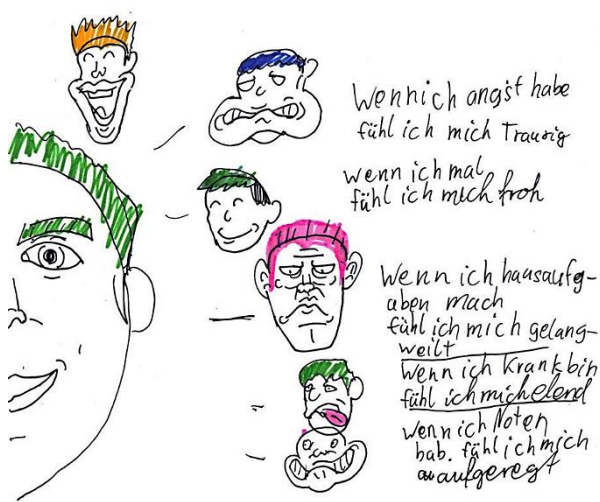 Wenn ich angst habe
fühl ich mich Traurig
wenn ich mal
fühl ich mich froh
Wenn ich hausaufg-
aben mach
fühl ich mich gelang-
weilt
Wenn ich Krank bin
fühl ich mich elend
wenn ich Noten
bab. fühl ich mich
aufgeregt